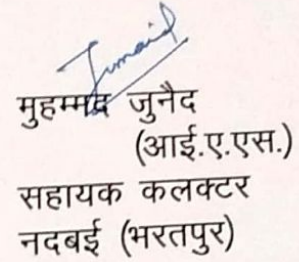 Junaid
मुहम्मद जुनैद
(आई.ए.एस.)
सहायक कलक्टर
नदबई (भरतपुर)